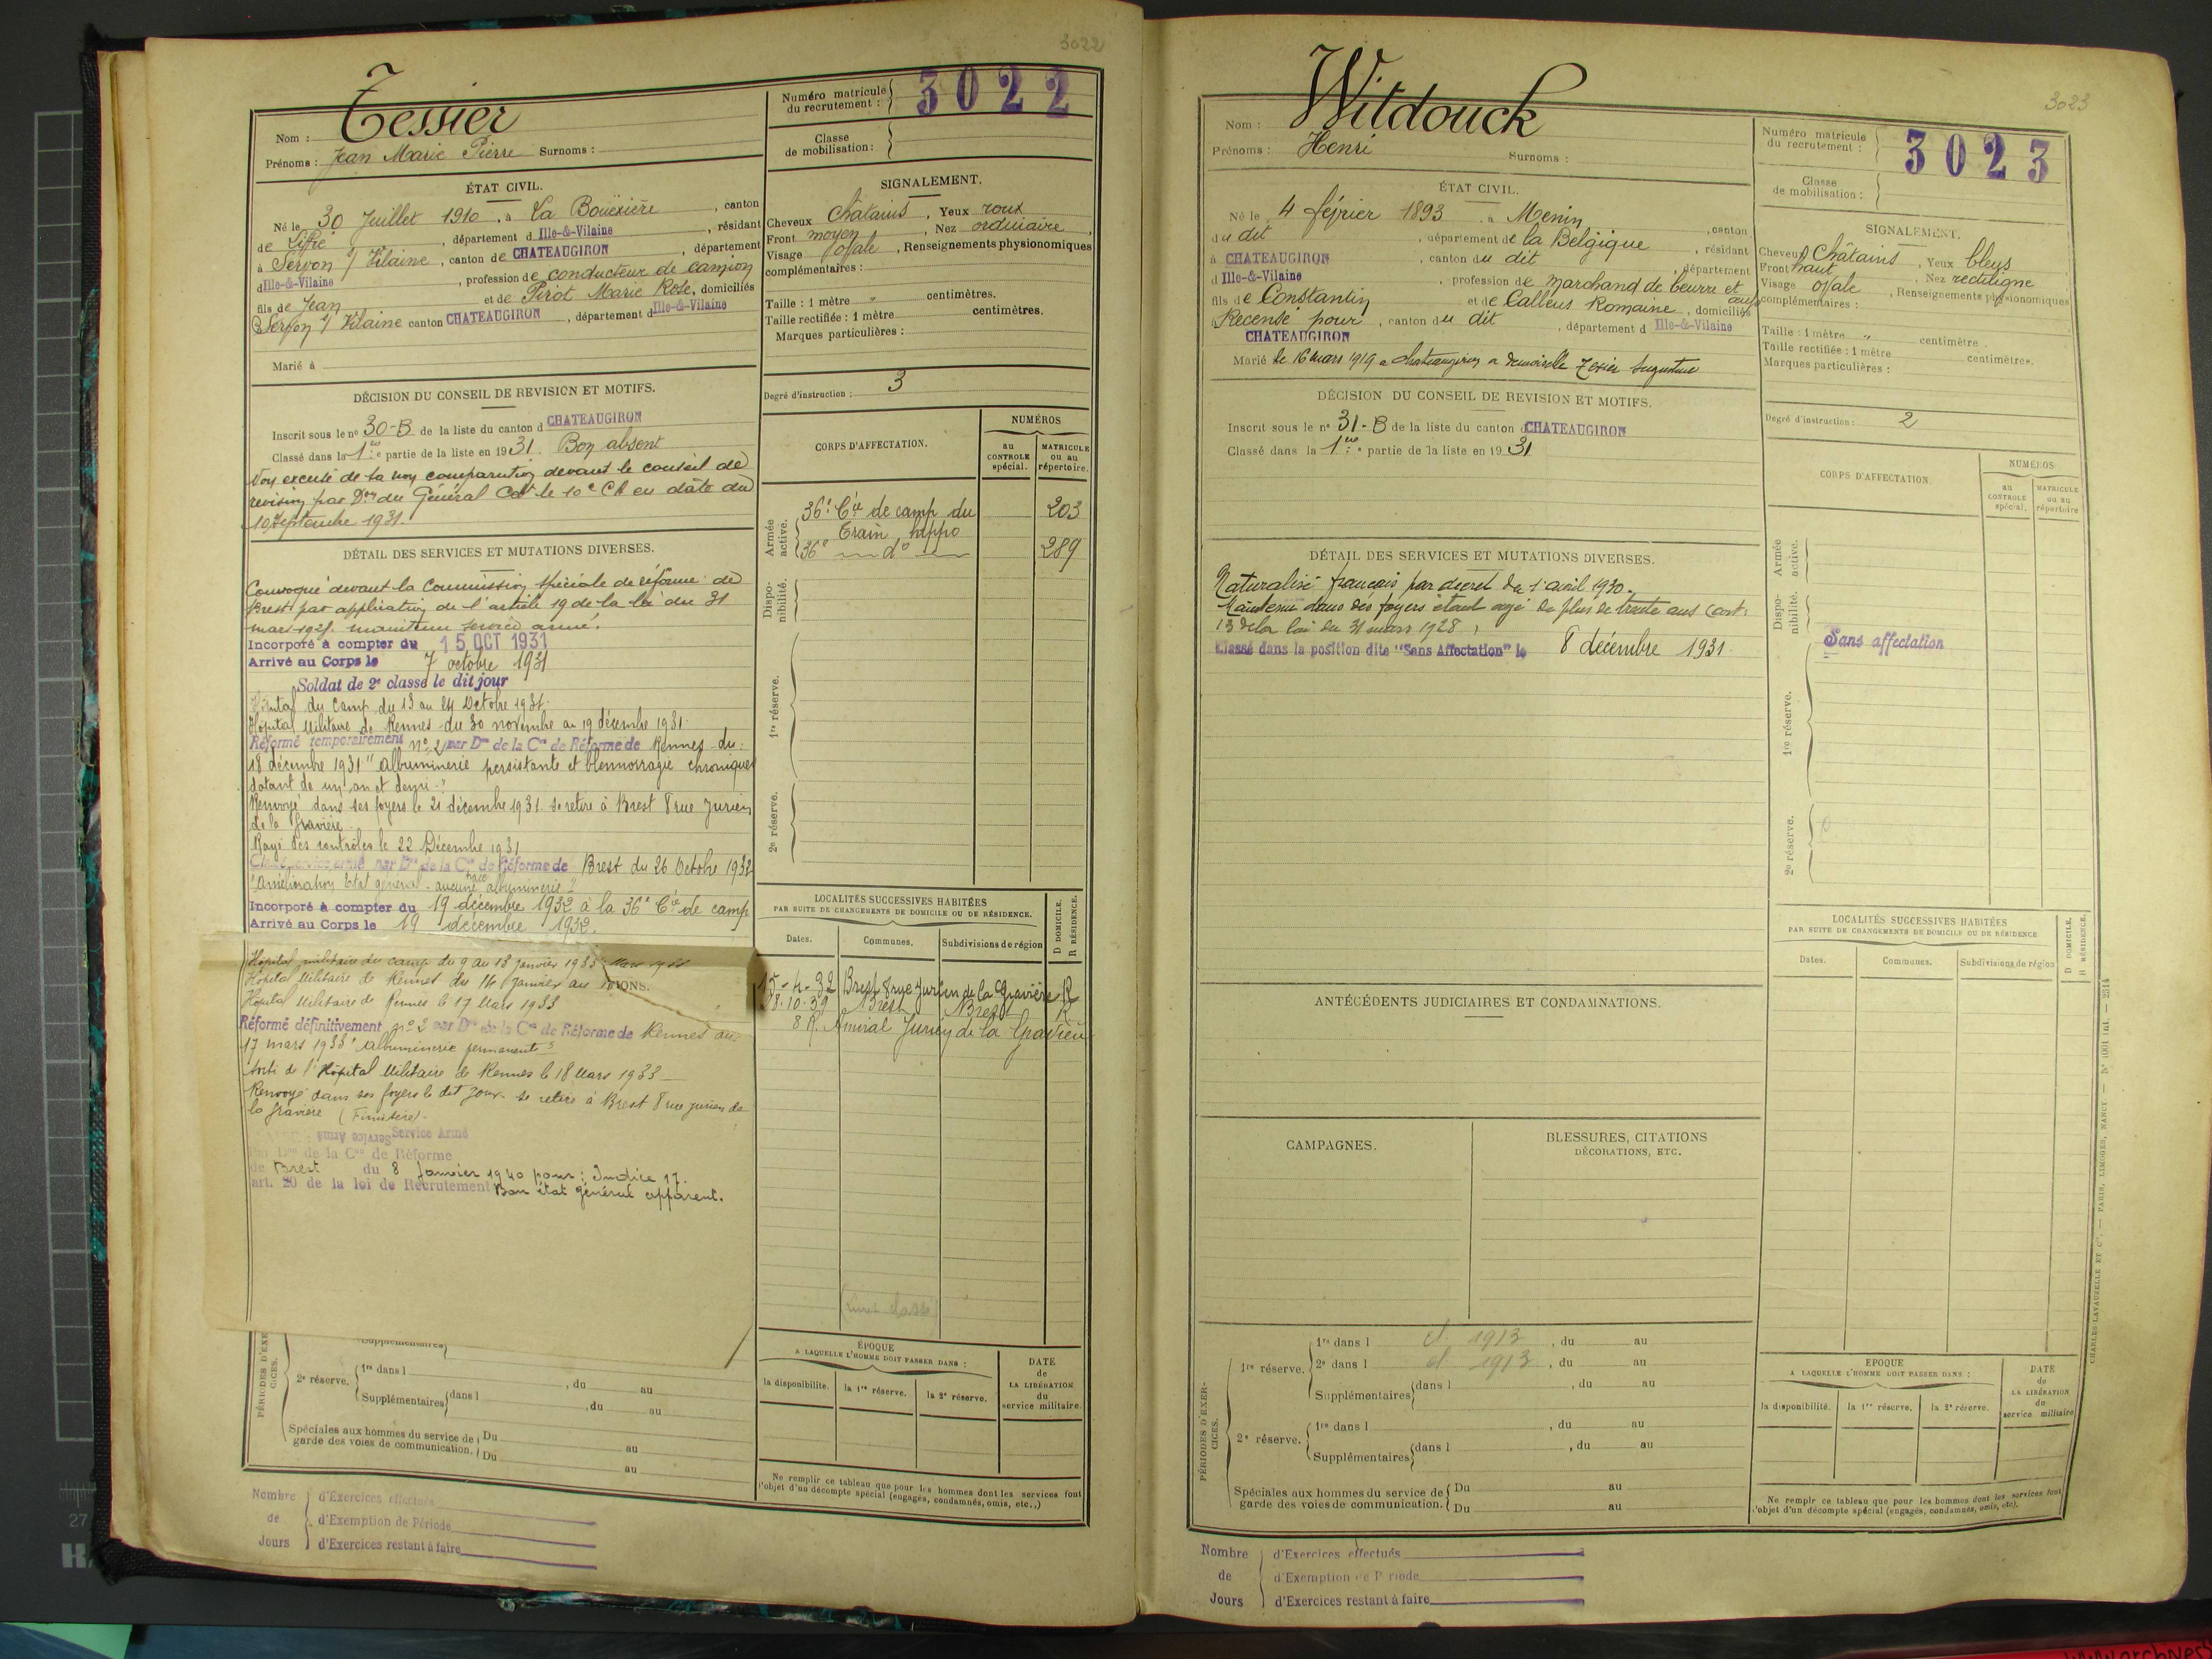 3022
Tessier
Nom :
Prénoms : Jean Marie Pierre Surnoms :
Numéro matricule du recrutement : 3022
Classe de mobilisation :
ÉTAT CIVIL.
Né le 30 Juillet 1910, à La Bouëxière, canton
de Liffré, département d Ille-&-Vilaine, résidant
à Servon s/ Vilaine, canton de CHATEAUGIRON, département
d Ille-&-Vilaine, profession de conducteur de camion
fils de Jean et de Pirot Marie Rose, domiciliés
à Servon s/ Vilaine canton CHATEAUGIRON, département d Ille-&-Vilaine
Marié à
SIGNALEMENT.
Cheveux châtains, Yeux roux
Front moyen, Nez ordinaire,
Visage ovale, Renseignements physionomiques
complémentaires :
Taille : 1 mètre " centimètres.
Taille rectifiée : 1 mètre centimètres.
Marques particulières :
Degré d'instruction : 3
DÉCISION DU CONSEIL DE REVISION ET MOTIFS.
Inscrit sous le n° 30-B de la liste du canton d CHATEAUGIRON
Classé dans la 1re partie de la liste en 1931. Bon absent
Non excusé de sa non comparution devant le conseil de
revision par Don du Général Cdt le 10e CA en date du
10 septembre 1931.
DÉTAIL DES SERVICES ET MUTATIONS DIVERSES.
Convoqué devant la Commission spéciale de réforme de
Brest par application de l'article 19 de la loi du 31
mars 1928. maintenu service armé.
Incorporé à compter du 15 OCT 1931
Arrivé au Corps le 7 octobre 1931
Soldat de 2e classe le dit jour
Hôpital du Camp du 13 au 24 Octobre 1931.
Hôpital Militaire de Rennes du 30 novembre au 19 décembre 1931.
Réformé temporairement n° 2 par Don de la Con de Réforme de Rennes du
18 décembre 1931 "albuminerie persistante et blennorragie chronique
datant de un an et demi."
Renvoyé dans ses foyers le 21 décembre 1931. se retire à Brest 8 rue Jurien
de la Gravière.
Rayé des contrôles le 22 Décembre 1931
Classé service armé par Don de la Con de Réforme de Brest du 26 Octobre 1932
"Amélioration Etat général - aucune trace albuminerie"
Incorporé à compter du 19 décembre 1932 à la 36e Cie de camp
Arrivé au Corps le 19 décembre 1932.
Hôpital militaire du camp du 9 au 13 janvier 1933
Hôpital Militaire de Rennes du 14 janvier au
IONS.
Hôpital Militaire de Rennes le 17 Mars 1933
Réformé définitivement n° 2 par Don de la Con de Réforme de Rennes du
17 mars 1933 "albuminerie permanente"
Sorti de l'Hôpital Militaire de Rennes le 18 Mars 1933
Renvoyé dans ses foyers le dit jour. se retire à Brest 8 rue jurien de
la Gravière (Finistère).
Service Armé Service Armé
Par Don de la Con de Réforme
de Brest du 8 Janvier 1940 pour : Indice 17.
art. 20 de la loi de Recrutement Bon état général apparent.
CORPS D'AFFECTATION.
NUMÉROS
au CONTROLE spécial.
MATRICULE ou au répertoire.
Armée active.
36e Cie de camp du 203
Train hippo
36e d° 289
Disponibilité.
1re réserve.
2e réserve.
LOCALITÉS SUCCESSIVES HABITÉES
PAR SUITE DE CHANGEMENTS DE DOMICILE OU DE RÉSIDENCE.
D DOMICILE.
R RÉSIDENCE.
Dates. Communes. Subdivisions de région
15-4-32 Brest 8 rue Jurien de la Gravière R
28.10.39 Brest Brest R
8 R. Amiral Jurien de la Gravière
Supplémentaires
PÉRIODES D'EXERCICES.
2e réserve. 1re dans l , du au
Supplémentaires dans l , du au
Spéciales aux hommes du service de garde des voies de communication. Du au
Du au
ÉPOQUE
A LAQUELLE L'HOMME DOIT PASSER DANS :
la disponibilité. la 1re réserve. la 2e réserve.
DATE de LA LIBÉRATION du service militaire.
Ne remplir ce tableau que pour les hommes dont les services font
l'objet d'un décompte spécial (engagés, condamnés, omis, etc.,)
Nombre de Jours
d'Exercices effectués
d'Exemption de Période
d'Exercices restant à faire
27
3023
Witdouck
Nom :
Prénoms : Henri Surnoms :
Numéro matricule du recrutement : 3023
Classe de mobilisation :
ÉTAT CIVIL.
Né le 4 février 1893, à Menin, canton
du dit, département de la Belgique, résidant
à CHATEAUGIRON, canton du dit, département
d Ille-&-Vilaine, profession de marchand de beurre et œufs
fils de Constantin et de Calleus Romaine, domiciliés
Recensé pour, canton du dit, département d Ille-&-Vilaine
CHATEAUGIRON
Marié le 16 mars 1919 a chateaugiron a demoiselle Texier Augustine
SIGNALEMENT.
Cheveux Châtains, Yeux bleus
Front haut, Nez rectiligne
Visage ovale, Renseignements physionomiques
complémentaires :
Taille : 1 mètre " centimètre.
Taille rectifiée : 1 mètre centimètres.
Marques particulières :
Degré d'instruction : 2
DÉCISION DU CONSEIL DE REVISION ET MOTIFS.
Inscrit sous le n° 31-B de la liste du canton d CHATEAUGIRON
Classé dans la 1re partie de la liste en 1931
DÉTAIL DES SERVICES ET MUTATIONS DIVERSES.
Naturalisé français par decret du 1 avril 1930.
Maintenu dans ses foyers étant agé de plus de trente ans (art.
13 de la loi du 31 mars 1928.
Classé dans la position dite "Sans Affectation" le 8 décembre 1931.
CORPS D'AFFECTATION.
NUMÉROS
au CONTROLE spécial.
MATRICULE ou au répertoire
Armée active.
Disponibilité.
Sans affectation
1re réserve.
2e réserve.
ANTÉCÉDENTS JUDICIAIRES ET CONDAMNATIONS.
CAMPAGNES.
BLESSURES, CITATIONS
DÉCORATIONS, ETC.
LOCALITÉS SUCCESSIVES HABITÉES
PAR SUITE DE CHANGEMENTS DE DOMICILE OU DE RÉSIDENCE
D DOMICILE.
R RÉSIDENCE.
Dates. Communes. Subdivisions de région
PÉRIODES D'EXERCICES.
1re réserve. 1re dans l cl. 1913, du au
2e dans l cl 1913, du au
Supplémentaires dans l , du au
2e réserve. 1re dans l , du au
Supplémentaires dans l , du au
Spéciales aux hommes du service de garde des voies de communication. Du au
Du au
ÉPOQUE
A LAQUELLE L'HOMME DOIT PASSER DANS :
la disponibilité. la 1re réserve. la 2e réserve.
DATE de LA LIBÉRATION du service militaire
Ne remplir ce tableau que pour les hommes dont les services font
l'objet d'un décompte spécial (engagés, condamnés, omis, etc).
CHARLES-LAVAUZELLE ET Cie. — PARIS, LIMOGES, NANCY — N° 1001 int. — 2514
Nombre de Jours
d'Exercices effectués
d'Exemption de Période
d'Exercices restant à faire
www.archives